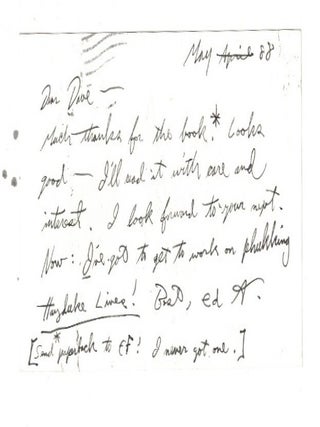 May April 88
Dear Dave —
Much thanks for the book.* Looks
good — I'll read it with care and
interest. I look forward to your next.
Now: I've got to get to work on phukking
Hayduke Lives! Best, Ed A.
[Send* paperback to EF! I never got one.]